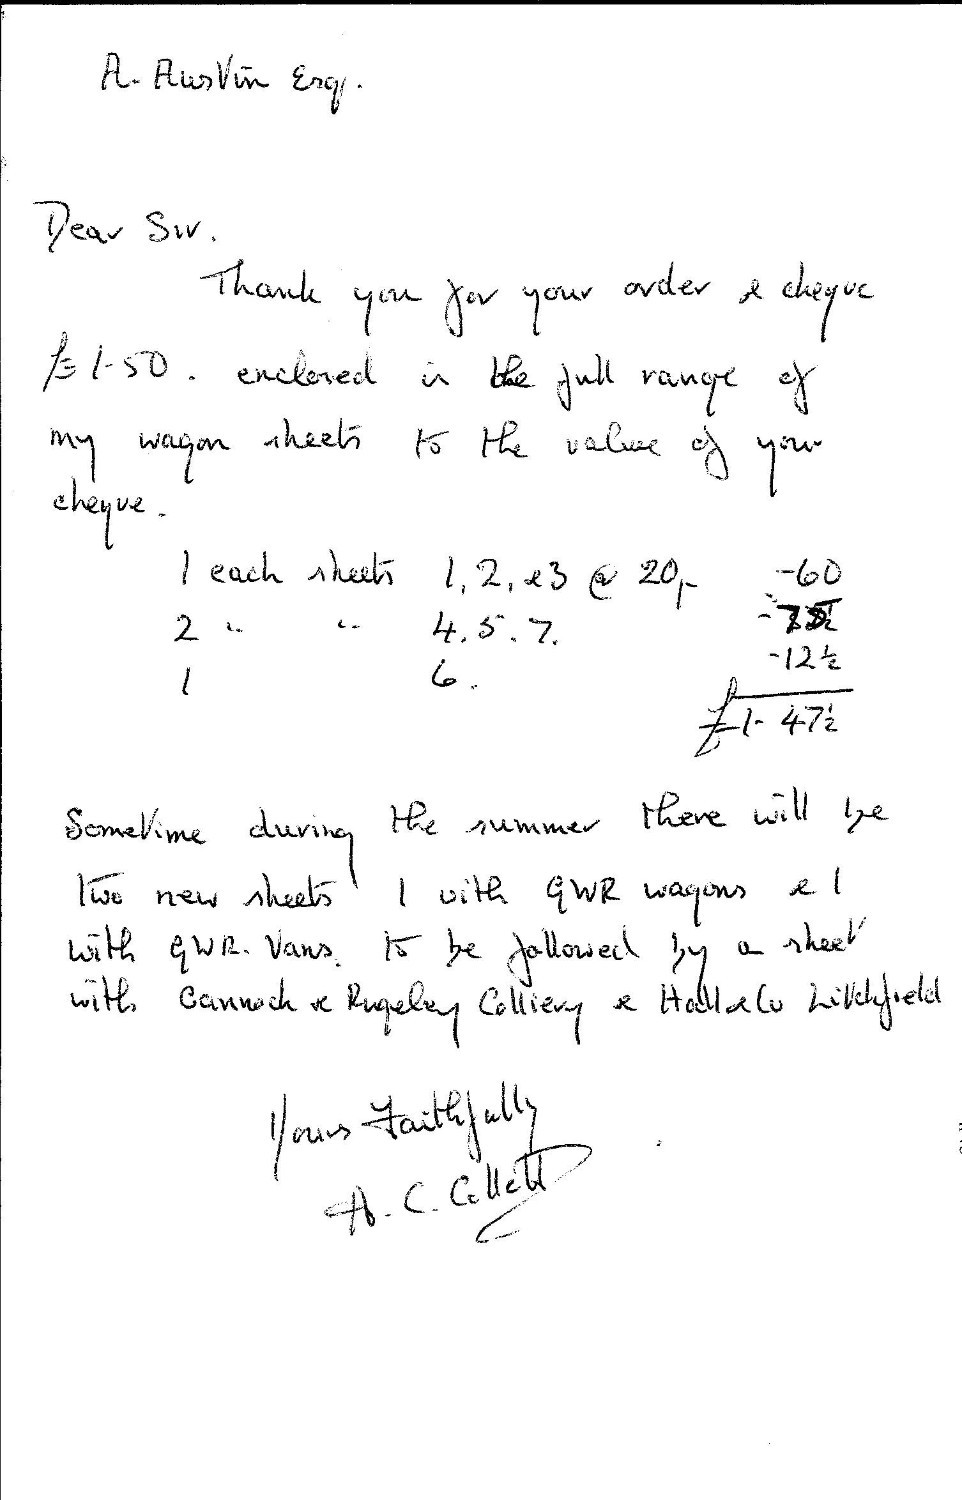 A. Austin Esq.
Dear Sir.
Thank you for your order & cheque
£1-50. enclosed is the full range of
my wagon sheets to the value of your
cheque.
1 each sheets 1, 2, &3 @ 20,- -60
2 " " 4. 5. 7.
1 6. -12½
£1-47½
Sometime during the summer there will be
two new sheets 1 with GWR wagons & 1
with GWR. Vans. to be followed by a sheet
with Cannock & Rugeley Colliery & Hall & Co Litchfield
Yours Faithfully
A. C. Collett